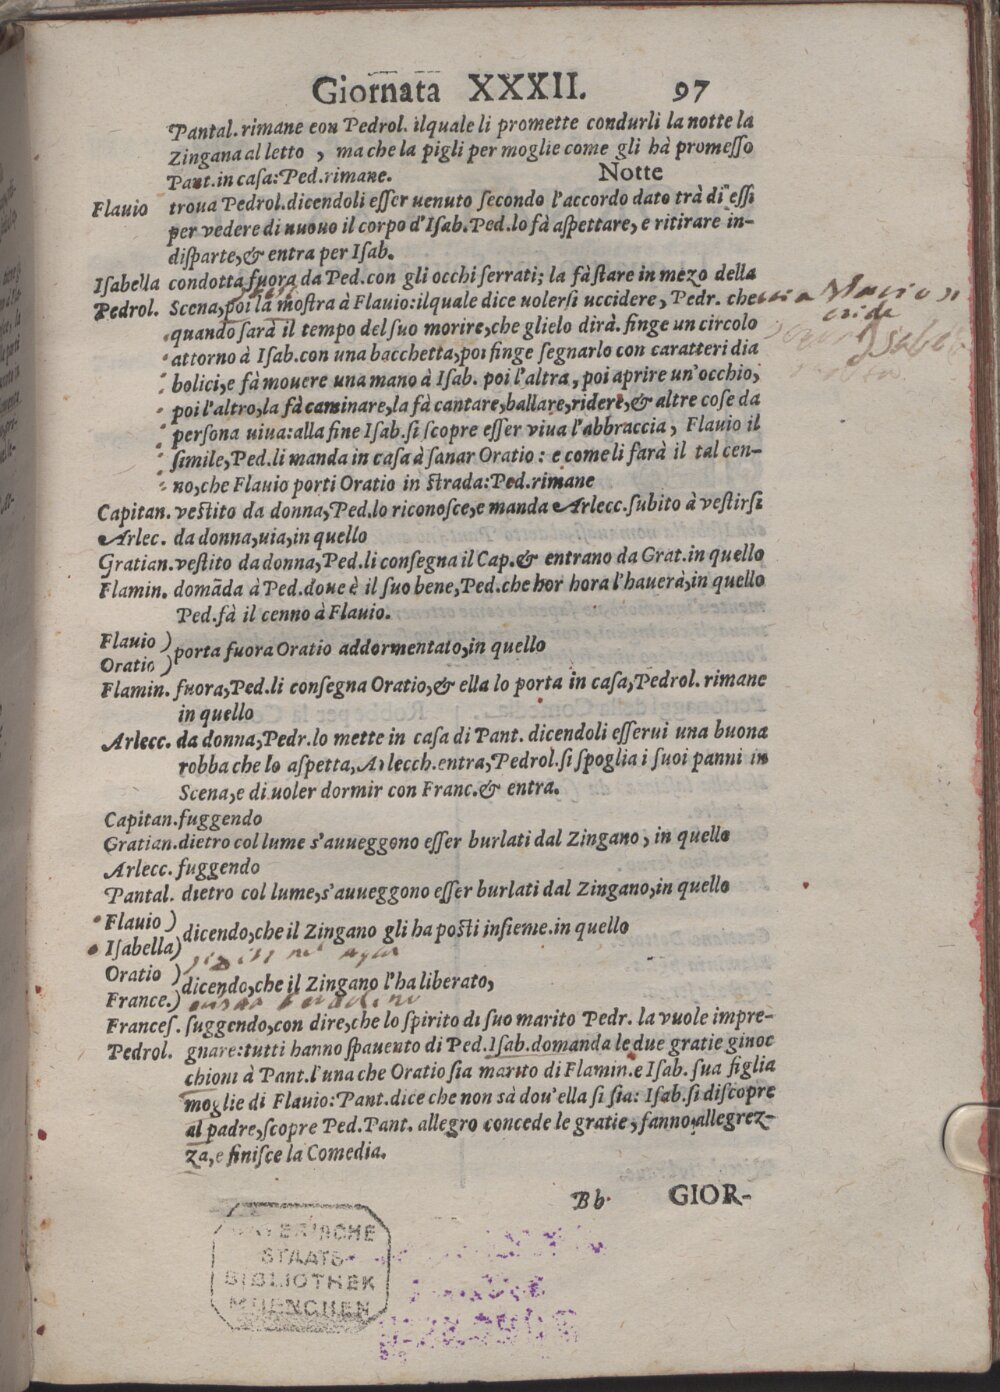 Giornata XXXII. 97
Pantal. rimane con Pedrol. ilquale li promette condurli la notte la
Zingana al letto, ma che la pigli per moglie come gli hà promesso
Pant. in casa: Ped. rimane. Notte
Flauio troua Pedrol. dicendoli esser uenuto secondo l'accordo dato trà di essi
per vedere di nuouo il corpo d'Isab. Ped. lo fà aspettare, e ritirare in-
disparte, & entra per Isab.
Isabella condotta fuora da Ped. con gli occhi serrati; la fà stare in mezo della
Pedrol. Scena, poi la mostra à Flauio: ilquale dice uolersi uccidere, Pedr. che
quando sarà il tempo del suo morire, che glielo dirà. finge un circolo
attorno à Isab. con una bacchetta, poi finge segnarlo con caratteri dia
bolici, e fà mouere una mano à Isab. poi l'altra, poi aprire un'occhio,
poi l'altro, la fà caminare, la fà cantare, ballare, ridere, & altre cose da
persona uiua: alla fine Isab. si scopre esser viua l'abbraccia, Flauio il
simile, Ped. li manda in casa à sanar Oratio: e come li farà il tal cen-
no, che Flauio porti Oratio in strada: Ped. rimane
Capitan. vestito da donna, Ped. lo riconosce, e manda Arlecc. subito à vestirsi
Arlec. da donna, uia, in quello
Gratian. vestito da donna, Ped. li consegna il Cap. & entrano da Grat. in quello
Flamin. domãda à Ped. doue è il suo bene, Ped. che hor hora l'hauerà, in quello
Ped. fà il cenno à Flauio.
Flauio )
Oratio ) porta fuora Oratio addormentato, in quello
Flamin. fuora, Ped. li consegna Oratio, & ella lo porta in casa, Pedrol. rimane
in quello
Arlecc. da donna, Pedr. lo mette in casa di Pant. dicendoli esserui una buona
robba che lo aspetta, Arlecch. entra, Pedrol. si spoglia i suoi panni in
Scena, e di uoler dormir con Franc. & entra.
Capitan. fuggendo
Gratian. dietro col lume s'auueggono esser burlati dal Zingano, in quello
Arlecc. fuggendo
Pantal. dietro col lume, s'auueggono esser burlati dal Zingano, in quello
Flauio )
Isabella) dicendo, che il Zingano gli ha posti insieme. in quello
Oratio )
France.) dicendo, che il Zingano l'ha liberato,
Frances. fuggendo, con dire, che lo spirito di suo marito Pedr. la vuole impre-
Pedrol. gnare: tutti hanno spauento di Ped. Isab. domanda le due gratie ginoc
chioni à Pant. l'una che Oratio sia marito di Flamin. e Isab. sua figlia
moglie di Flauio: Pant. dice che non sà dou'ella si sia: Isab. si discopre
al padre, scopre Ped. Pant. allegro concede le gratie, fanno allegrez-
za, e finisce la Comedia.
Bb GIOR-
BAYERISCHE
STAATS-
BIBLIOTHEK
MUENCHEN